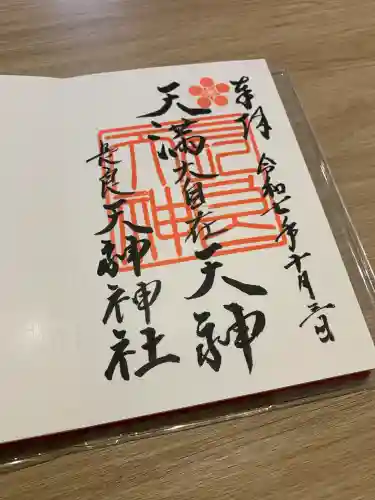 奉拝
令和七年十月三日
天満大自在天神
長良天神神社
長良天神